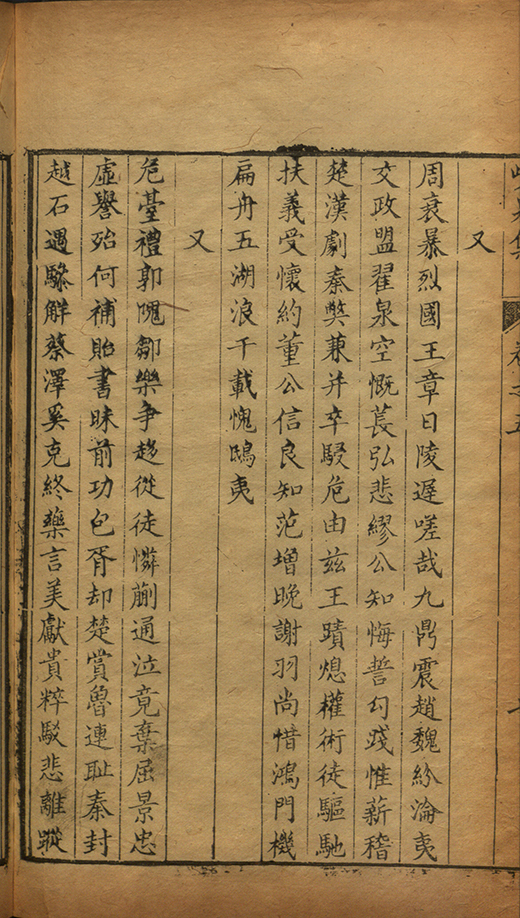 卷之五
又
周衰暴烈國王章日陵遲嗟哉九鼎震趙魏紛淪夷
交政盟翟泉空慨萇弘悲繆公知悔誓勾踐惟薪稽
楚漢劇秦獘兼并卒駁危由兹王蹟熄權術徒驅馳
扶義受懷約董公信良知范增晚謝羽尚惜鴻門機
扁舟五湖浪千載愧鴟夷
又
危臺禮郭隗鄒樂爭趍從徒憐蒯通泣竟棄屈景忠
虛譽殆何補貽書昧前功包胥却楚賞魯連耻秦封
越石遇驂解蔡澤奚克終藥言美獻貴粹駁悲離蹤